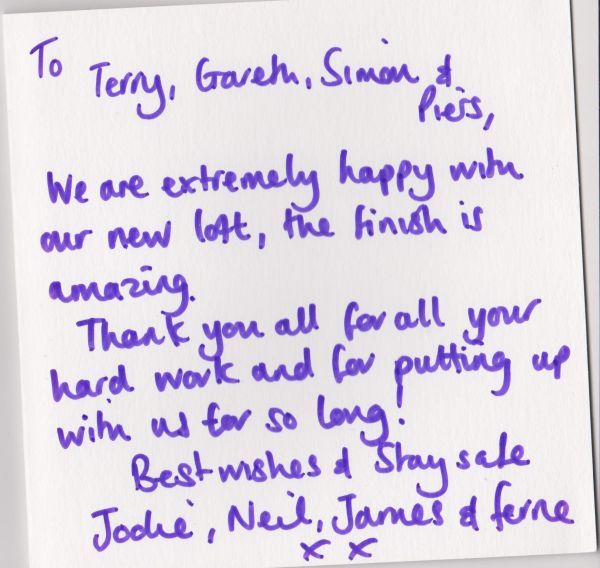 To
Terry, Gareth, Simon &
Piers,
We are extremely happy with
our new loft, the finish is
amazing.
Thank you all for all your
hard work and for putting up
with us for so long!
Best wishes & Stay safe
Jodie, Neil, James & ferne
x x